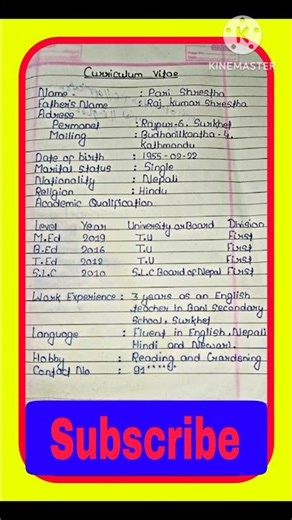 KINEMASTER
Curriculum Vitae
Name : Pari Shrestha
Father's Name : Raj kumar Shrestha
Adress
Permanet : Rajpur-6, Surkhet
Mailing : Budhanilkantha-4,
Kathmandu
Date of birth : 1955-02-22
Marital status : Single
Nationality : Nepali
Religion : Hindu
Academic Qualification
Level Year University or Board Division
M.Ed 2019 T.U First
B.Ed 2016 T.U First
I.Ed 2012 T.U First
S.L.C 2010 S.L.C Board of Nepal First
Work Experience : 3 years as an English
teacher in Bani Secondary
School, Surkhet
Language : Fluent in English, Nepali
Hindi and Newari.
Hobby : Reading and Grardening
Contact No : 91*****
Subscribe